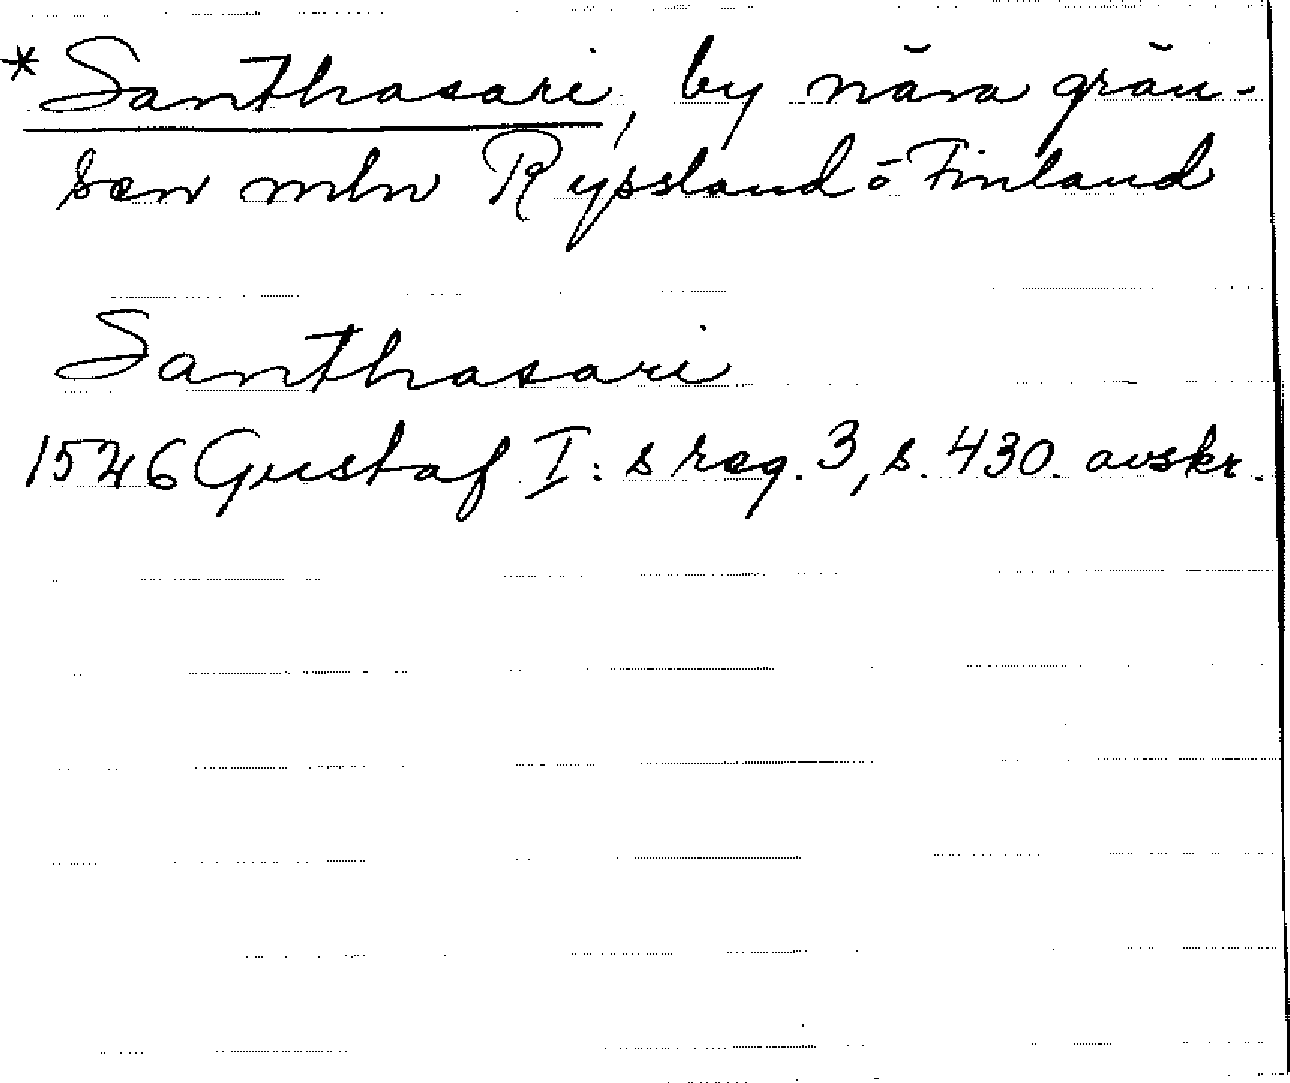 *Santhasari, by nära grän-
sen mln Ryssland o Finland
Santhasari
1546 Gustaf I:s reg. 3, s. 430. avskr.